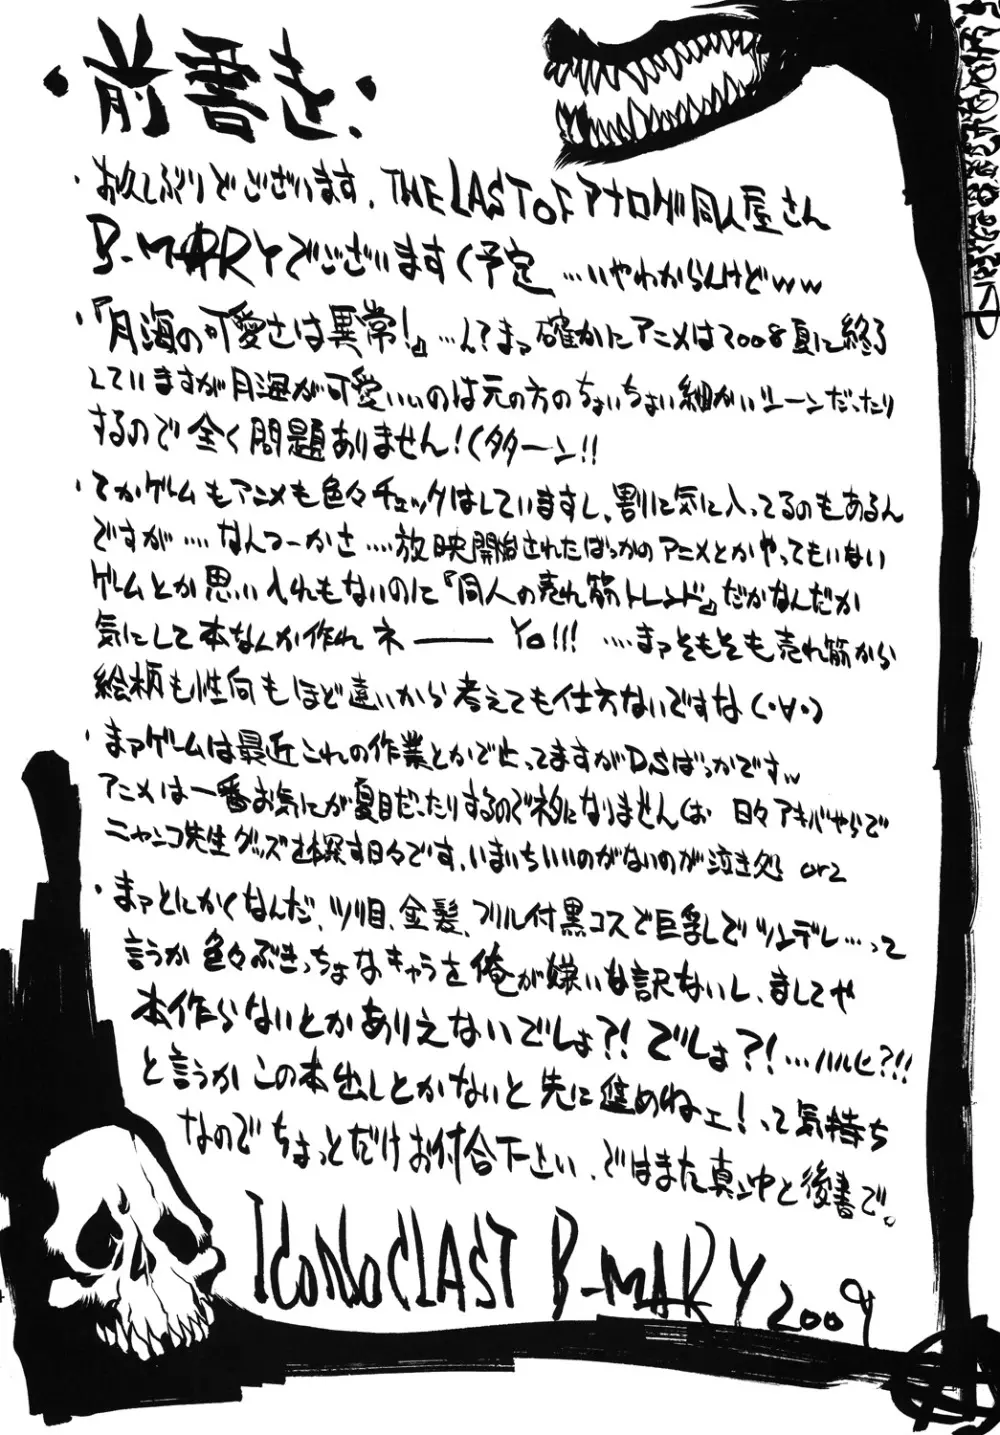 ・前書き・
・お久しぶりでございます、THE LAST OF アナログ同人屋さん
B-MARYでございます(予定 …いやわからんけどww
・『月海の可愛さは異常！』…ん？まァ確かにアニメは2008夏に終了
していますが月海が可愛いいのは元の方のちょいちょい細かいシーンだったり
するので全く問題ありません！(タターン!!
・てかゲームもアニメも色々チェックはしていますし、割に気に入ってるのもあるん
ですが‥‥なんつーかさ‥‥放映開始されたばっかのアニメとかやってもいない
ゲームとか思い入れもないのに『同人の売れ筋トレンド』だかなんだか
気にして本なんか作れネ――Yo!!! ‥‥まァそもそも売れ筋から
絵柄も性向もほど遠いから考えても仕方ないですな(・∀・)
・まァゲームは最近これの作業とかで止ってますがDSばっかですw
アニメは一番お気にが夏目だったりするのでネタになりませんしお 日々アキバやらで
ニャンコ先生グッズを探す日々です、いまいちいいのがないのが泣き処 orz
・まァとにかくなんだ、ツリ目、金髪、フリル付黒コスで巨乳でツンデレ…って
言うか色々ぶきっちょなキャラを俺が嫌いな訳ないし、ましてや
本作らないとかありえないでしょ?! でしょ?! …ハルヒ?!!
と言うかこの本出しとかないと先に進めねェ！って気持ち
なのでちょっとだけお付合下さい、ではまた真ン中と後書で。
ICONOCLAST B-MARY 2009